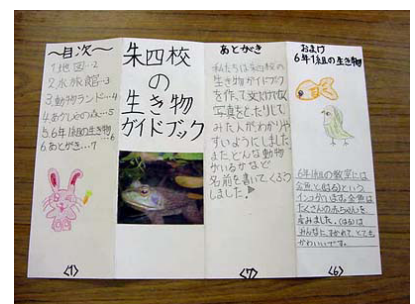 〜目次〜
1地図‥2
2水族館‥3
3動物ランド‥4
4あケしきの森‥5
5 6年1組の生き物‥6
6あとがき‥7
<1>
朱四校
の
生き物
ガイドブック
あとがき
私たちは朱四校の
生き物ガイドブック
を作って文だけでなく
写真をとったりして
みた人がわかりや
すいようにしました
またどんな動物
がいるかなど
名前を書いてくふう
しました。
<7>
おまけ
6年1組の生き物
6年1組の教室には
金魚と(はる)という
インコがいます。金魚は
たくさんの赤ちゃんを
産みました。(はる)は
みんなに
かわいいです。
<6>